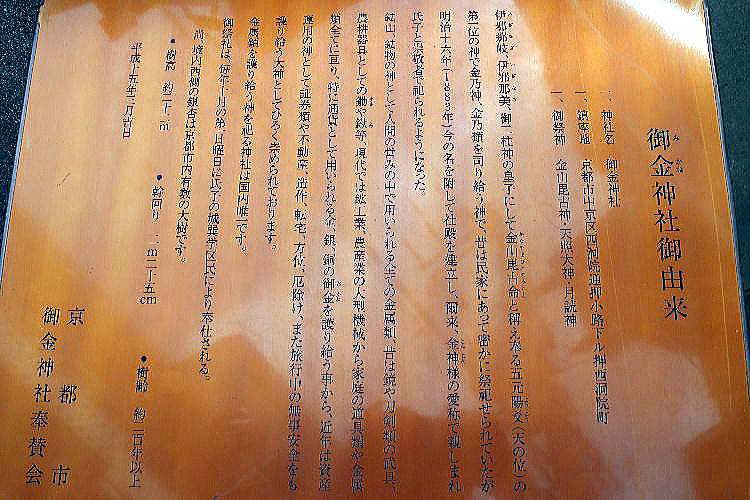 御金神社御由来
みかね
一、神社名 御金神社
一、鎮座地 京都市中京区西洞院通押小路下ル押西洞院町
一、御祭神 金山毘古神・天照大神・月読神
伊邪那岐、伊邪那美、御二柱神の皇子にして金山毘古命と称え奉る五元陽爻(天の位)の
第一位の神で金乃神、金乃類を司り給う神で、昔は民家にあって密かに祭祀せられていたが
明治十六年(1883年)今の名を附して社殿を建立し、爾来、金神様の愛称で親しまれ
氏子と崇敬者で祀られるようになった。
鉱山、鉱物の神として人間の営みの中で用いられる全ての金属類、昔は鏡や刀剣類の武具、
農耕器具としての鋤や鍬等、現代では鉱工業、農産業の大型機械から家庭の道具類や金属
類全てに亘り、特に通貨として用いられる金、銀、銅の御金を護り給う事から、近年は資産
運用の神として証券類や不動産、造作、転宅、方位、厄除け、また旅行中の無事安全をも
護り給う大神としてひろく崇められております。
金属類を護り給う神を祀る神社は国内唯一です。
御祭礼は、毎年十一月の第一日曜日に氏子の城巽学区民により奉仕される。
尚、境内西側の銀杏は京都市内有数の大樹です。
●樹高 約二十二m ●幹回り 二m二十五cm ●樹齢 約二百年以上
平成十五年三月吉日
京都市
御金神社奉賛会